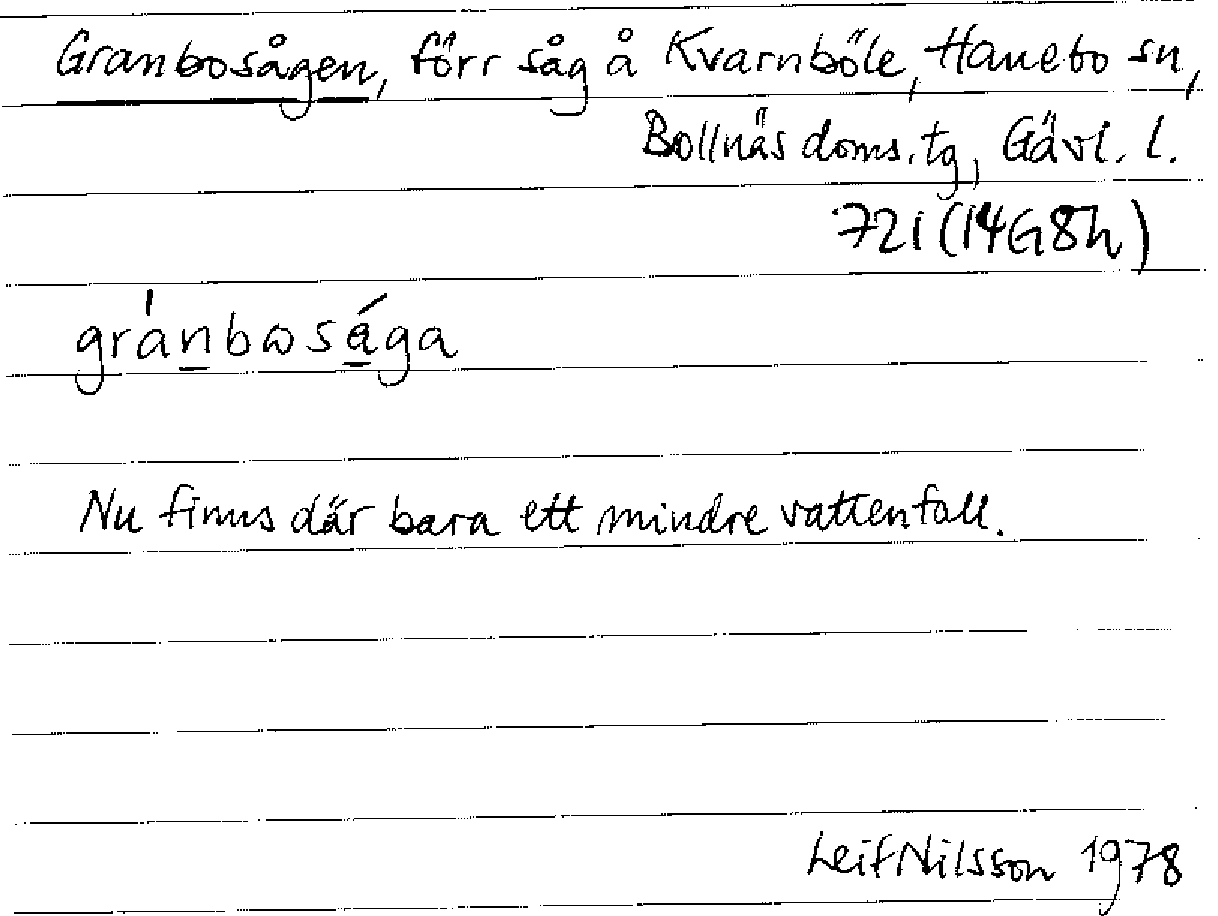 Granbosågen, förr såg å Kvarnböle, Hanebo sn,
Bollnäs doms. tg, Gävl. l.
721 (14G8h)
gránbωsága
Nu finns där bara ett mindre vattenfall.
Leif Nilsson 1978